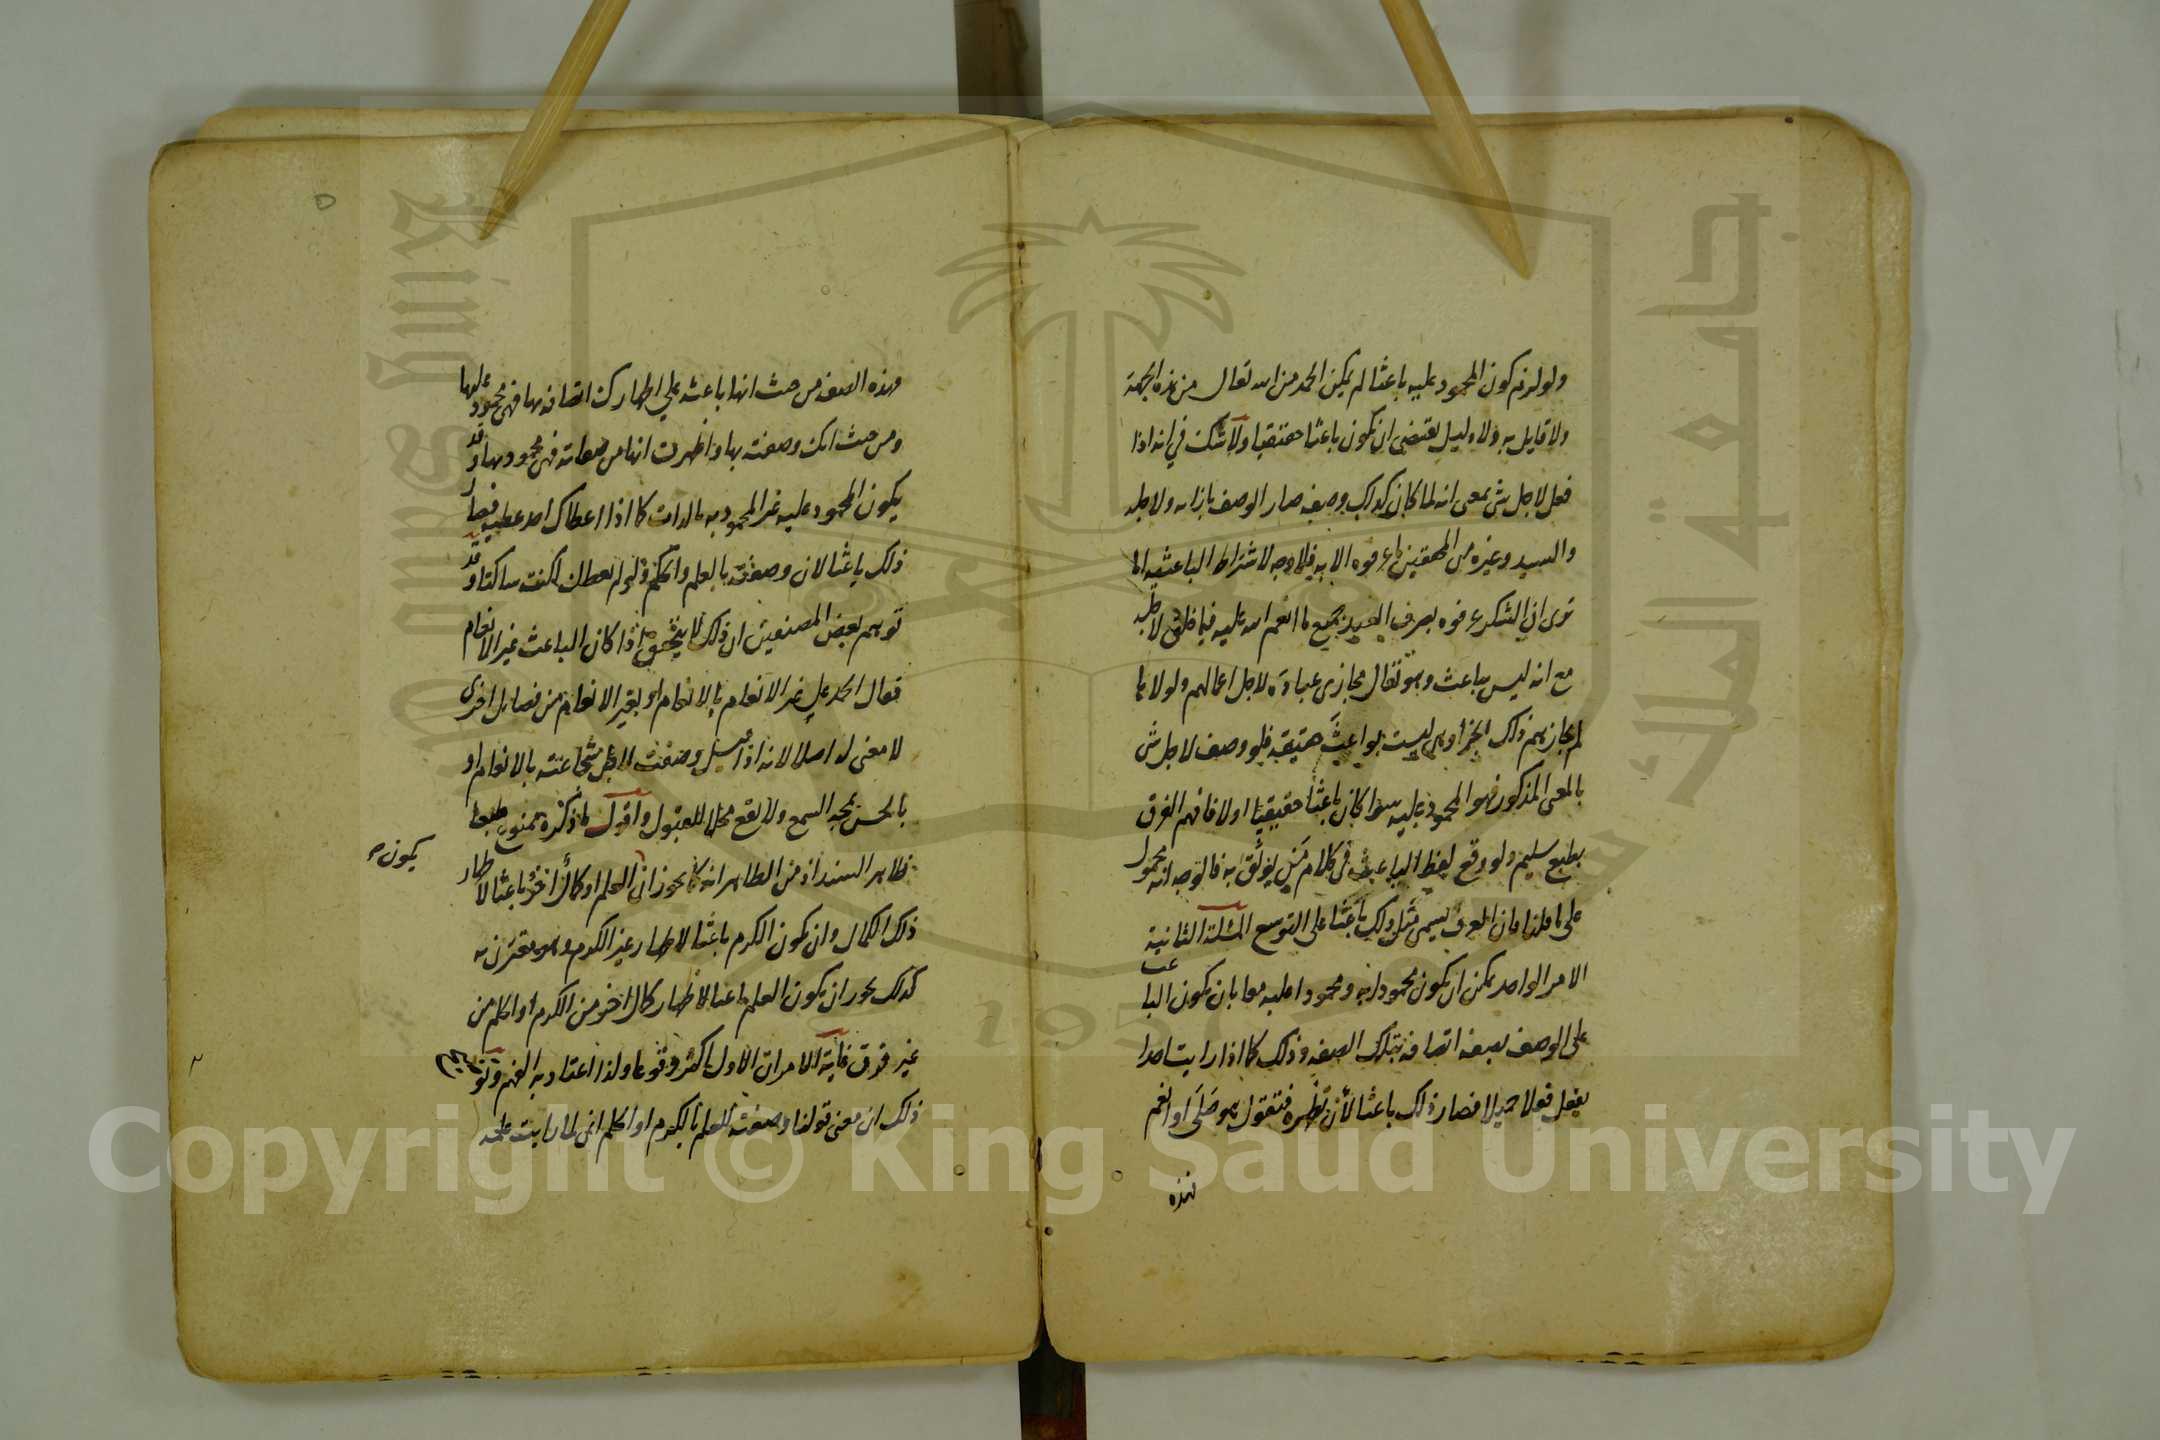 ولو لزم كون المحمود عليه باعثا لم يمكن الحمد من الله تعالى من هذه الجهة
ولا قايل به ولا دليل يقتضي ان يكون باعثا حقيقيا ولا شك في انه اذا
فعل لاجل شي بمعنى انه لما كان كذلك وصفه صار الوصف بازائه ولاجله
والسيد وغيره من المحققين ما عرفوه الا به فلا وجه لاشتراط الباعثية الا
ترى ان الشكر عرفوه بصرف العبد جميع ما انعم الله عليه فيما خلق لاجله
مع انه ليس بباعث وهو تعالى مجازي عباده لاجل اعمالهم ولولاها
لم يجازهم ذلك الجزا وهي ليست بواعث حقيقة فلو وصف لاجل شي
بالمعنى المذكور فهو المحمود عليه سوا كان باعثا حقيقيا اولا فافهم الفرق
بطبع سليم ولو وقع لفظ الباعث في كلام من يوثق به فالوجه انه محمول
على ما قلنا فان العرف يسمي مثل ذلك باعثا على التوسع المسئلة الثانية
الامر الواحد يمكن ان يكون محمودا به ومحمودا عليه معا بان يكون الباعث
على الوصف بصفة اتصافه بتلك الصفة وذلك كما اذا رايت احدا
يفعل فعلا جميلا فصار ذلك باعثا لأن تظهره فتقول هو صلى او انعم
فهذه
فهذه الصفة من حيث انها باعثة على اظهارك اتصافه بها فهي محمود عليها
ومن حيث انك وصفته بها واظهرت انها من صفاته فهي محمود بها وقد
يكون المحمود عليه غير المحمود به بالذات كما اذا اعطاك احد عطية فصار
ذلك باعثا لان وصفته بالعلم والحكم ولو لم يعطك لكنت ساكتا وقد
توهم بعض المصنفين ان ذلك لا يتحقق اذا كان الباعث غير الانعام
فقال الحمد على غير الانعام بالانعام او بغير الانعام من فضايل اخرى
لا معنى له اصلا لانه اذا قيل وصفت لاجل شجاعته بالانعام او
بالحسن يمجه السمع ولا يقع محلا للقبول واقول ما ذكره ممنوع
ظاهر السند اذ من الظاهر انه كما يجوز ان العلم او كمال اخر باعثا لاظهار
يكون صح
ذلك الكمال وان يكون الكرم باعثا لاظهار غير الكرم وهو معترف به
كذلك يجوز ان يكون العلم باعثا لاظهار كمال اخر من الكرم او الحلم من
غير فرق غاية الامر ان الاول اكثر وقوعا ولذا اعتاد به الفهم وتوضيح
ذلك ان معنى قولنا وصفته للعلم بالكرم او الحلم انى لما رايت علمه
King Saud University
جامعة الملك سعود
1957
Copyright © King Saud University